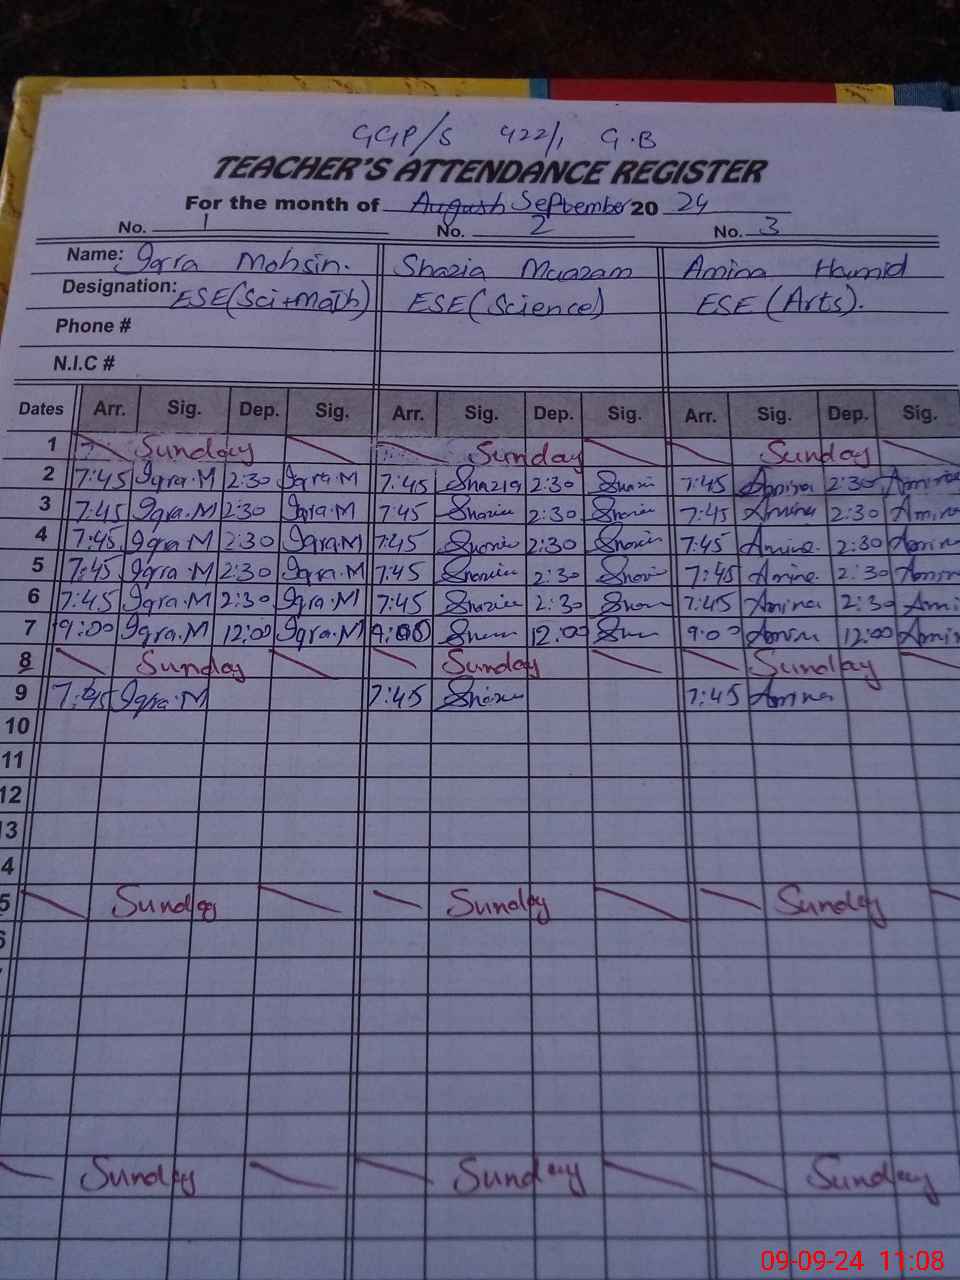 GGP/S 422/1 G.B
TEACHER'S ATTENDANCE REGISTER
For the month of August September 20 24
No. 1 No. 2 No. 3
Name: Iqra Mohsin. Shazia Muazam Amina Hamid
Designation: ESE(Sci+Math) ESE(Science) ESE (Arts).
Phone #
N.I.C #
Dates Arr. Sig. Dep. Sig. Arr. Sig. Dep. Sig. Arr. Sig. Dep. Sig.
1 Sunday Sunday Sunday
2 7:45 Iqra.M 2:30 Iqra.M 7:45 Shazia 2:30 Shazia 7:45 Amina 2:30 Amina
3 7:45 Iqra.M 2:30 Iqra.M 7:45 Shazia 2:30 Shazia 7:45 Amina 2:30 Amina
4 7:45 Iqra.M 2:30 Iqra.M 7:45 Shazia 2:30 Shazia 7:45 Amina 2:30 Amin
5 7:45 Iqra.M 2:30 Iqra.M 7:45 Shazia 2:30 Shazia 7:45 Amina 2:30 Amin
6 7:45 Iqra.M 2:30 Iqra.M 7:45 Shazia 2:30 7:45 Amina 2:30 Ami
7 9:00 Iqra.M 12:00 Iqra.M 9:00 12:00 9:00 Amina 12:00 Amin
8 Sunday Sunday Sunday
9 7:45 Iqra.M 7:45 Shazia 7:45 Amina
10
11
12
13
4
5 Sunday Sunday Sunday
6
Sunday Sunday Sunday
09-09-24 11:08